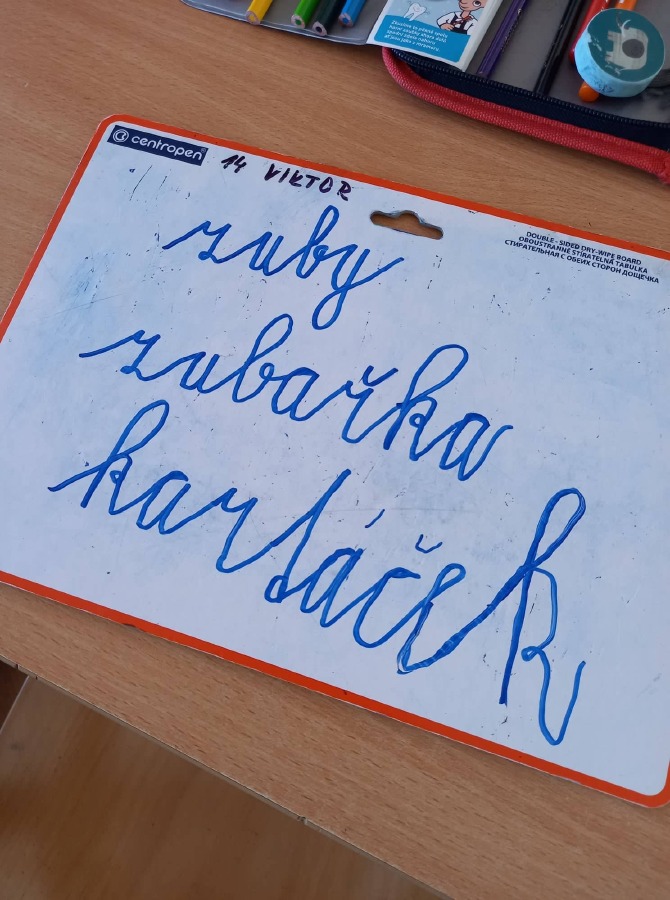 centropen
14 VIKTOR
DOUBLE - SIDED DRY-WIPE BOARD
OBOUSTRANNĚ STÍRATELNÁ TABULKA
СТИРАТЕЛЬНАЯ С ОБЕИХ СТОРОН ДОЩЕЧКА
zuby
zubařka
kartáček